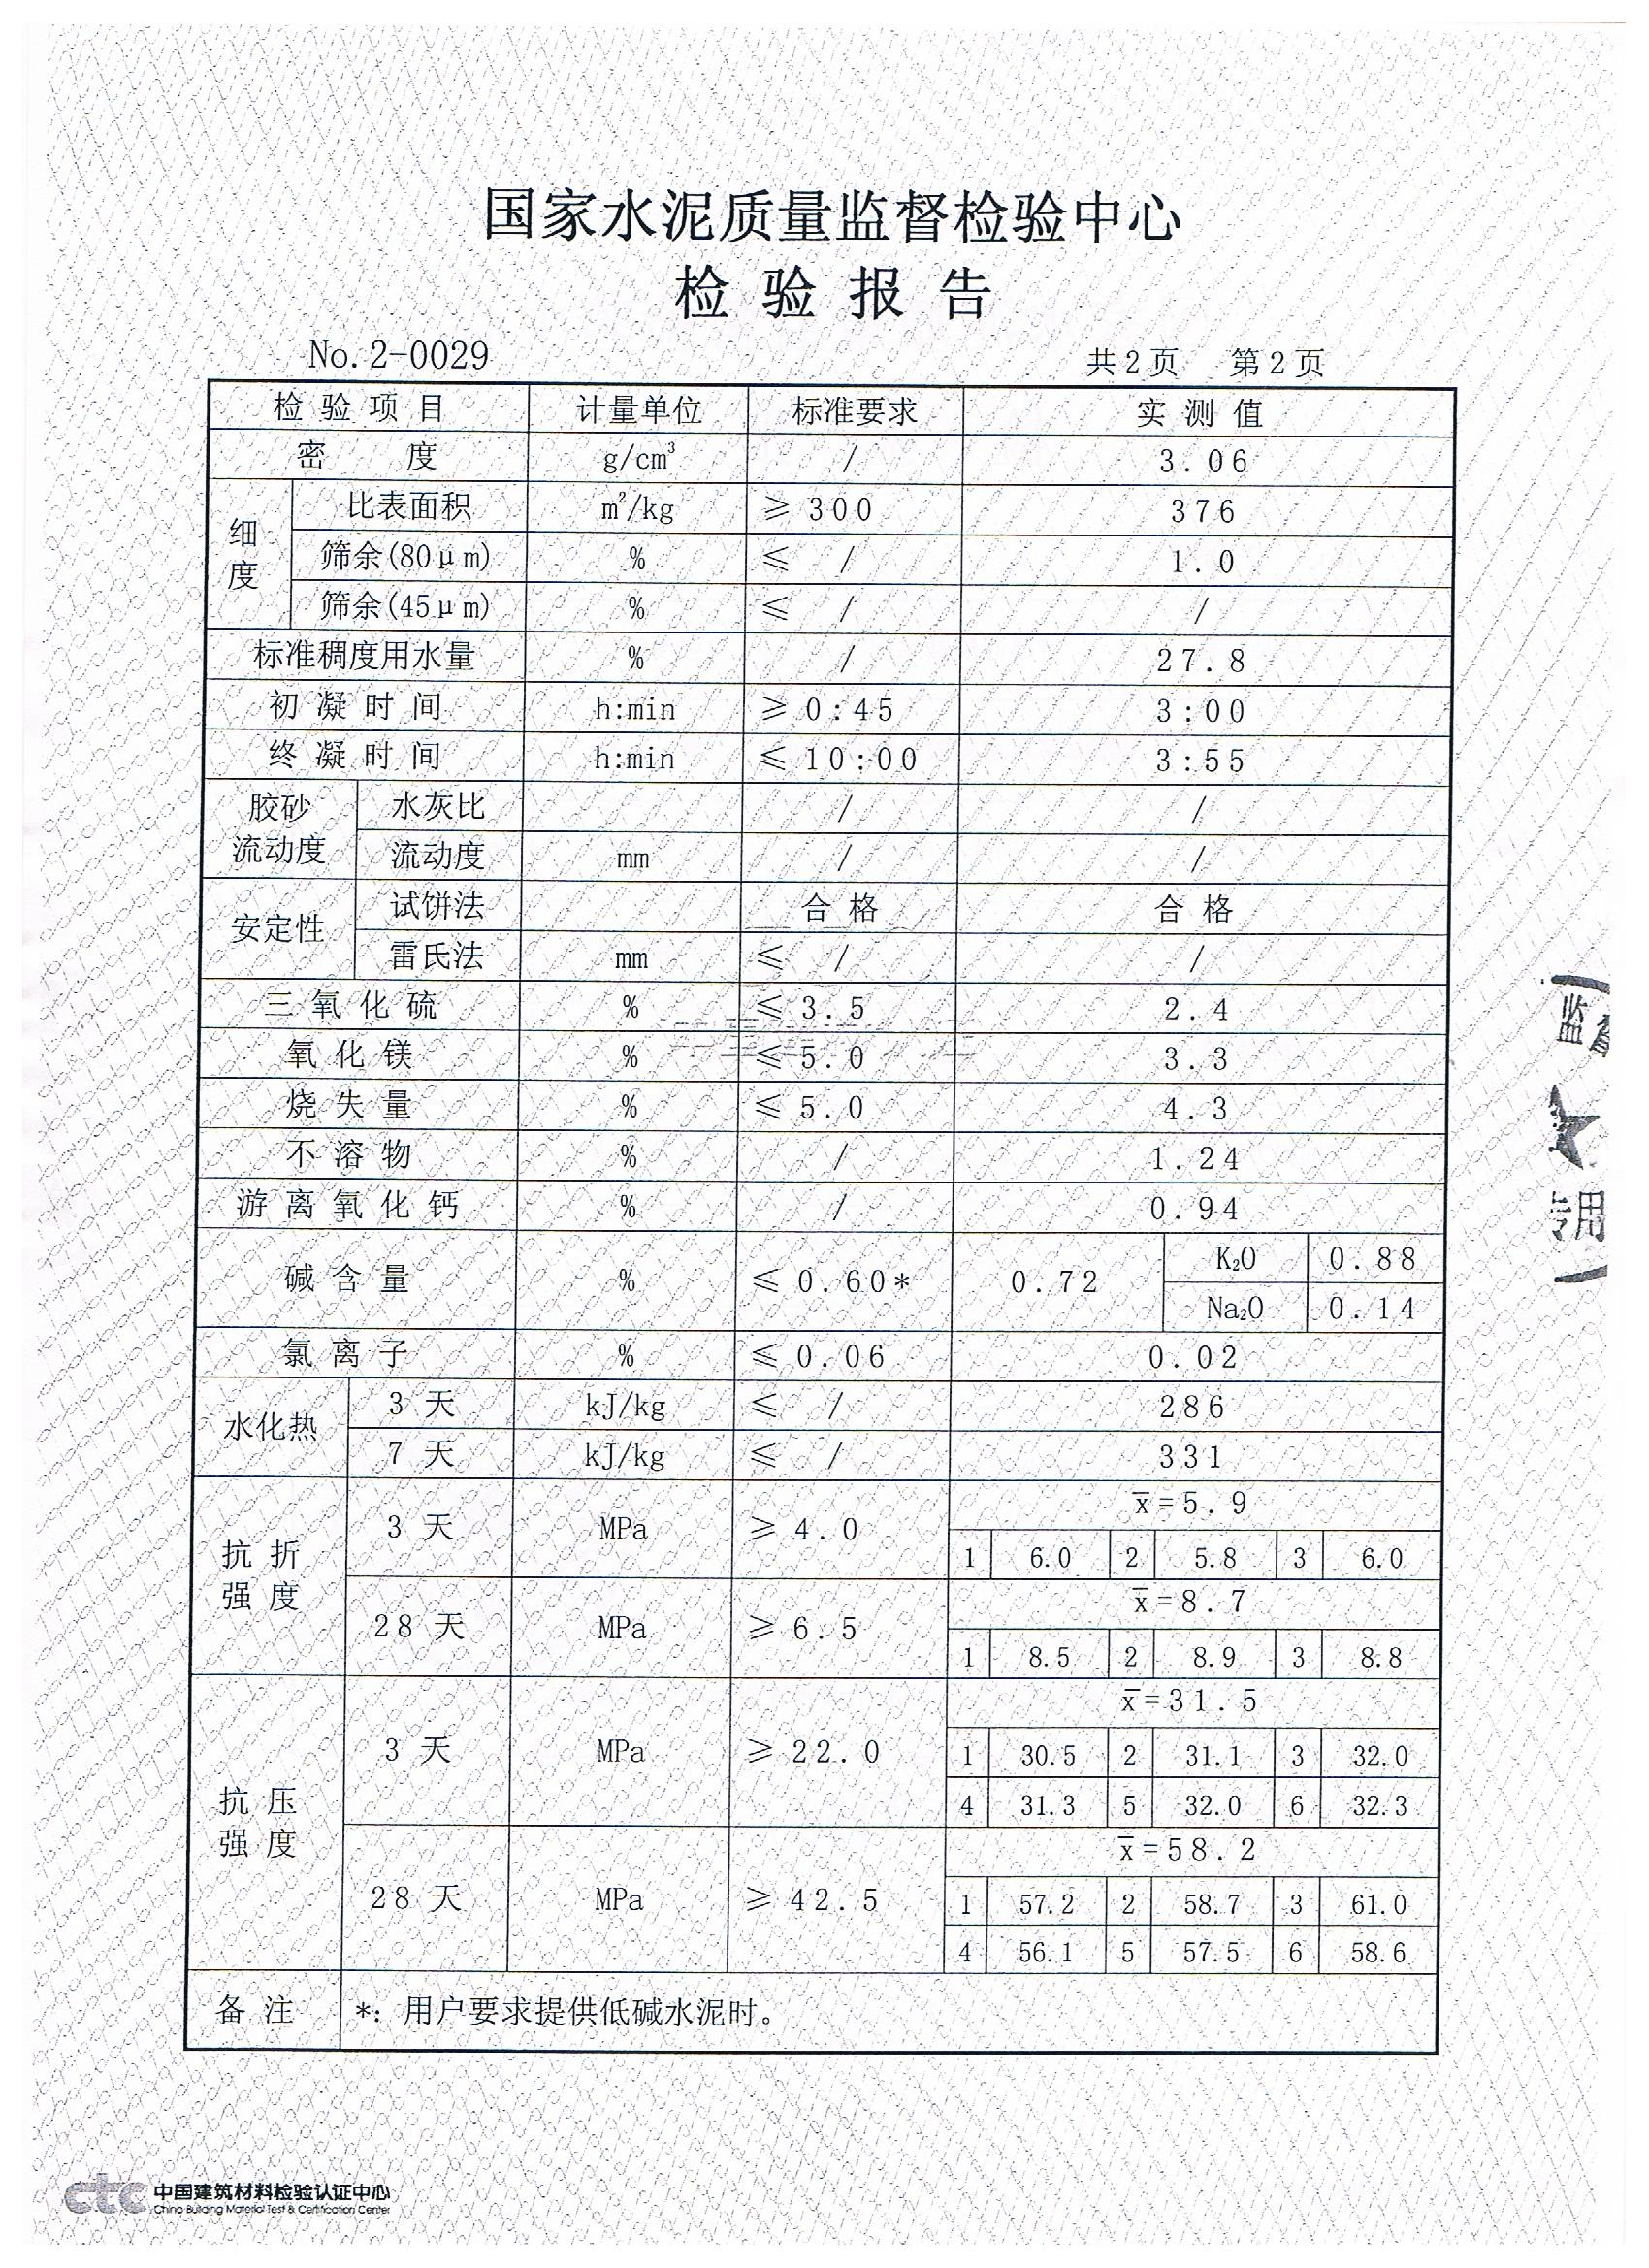 国家水泥质量监督检验中心
检验报告
No.2-0029 共2页 第2页
检验项目 计量单位 标准要求 实测值
密度 g/cm³ / 3.06
细度 比表面积 m²/kg ≥300 376
筛余(80μm) % ≤ / 1.0
筛余(45μm) % ≤ / /
标准稠度用水量 % / 27.8
初凝时间 h:min ≥0:45 3:00
终凝时间 h:min ≤10:00 3:55
胶砂流动度 水灰比 / /
流动度 mm / /
安定性 试饼法 合格 合格
雷氏法 mm ≤ / /
三氧化硫 % ≤3.5 2.4
氧化镁 % ≤5.0 3.3
烧失量 % ≤5.0 4.3
不溶物 % / 1.24
游离氧化钙 % / 0.94
碱含量 % ≤0.60* 0.72 K₂O 0.88
Na₂O 0.14
氯离子 % ≤0.06 0.02
水化热 3天 kJ/kg ≤ / 286
7天 kJ/kg ≤ / 331
抗折强度 3天 MPa ≥4.0 x̄=5.9
1 6.0 2 5.8 3 6.0
28天 MPa ≥6.5 x̄=8.7
1 8.5 2 8.9 3 8.8
抗压强度 3天 MPa ≥22.0 x̄=31.5
1 30.5 2 31.1 3 32.0
4 31.3 5 32.0 6 32.3
28天 MPa ≥42.5 x̄=58.2
1 57.2 2 58.7 3 61.0
4 56.1 5 57.5 6 58.6
备注 *: 用户要求提供低碱水泥时。
监督
专用
ctc 中国建筑材料检验认证中心
China Building Material Test & Certification Center